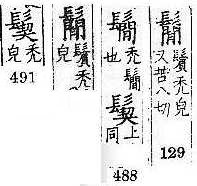 鬜
鬢禿皃
又苦八切
129
鬜
禿鬜
也
鬝
上
同
488
鬜
鬢禿
皃
鬝
禿
皃
491